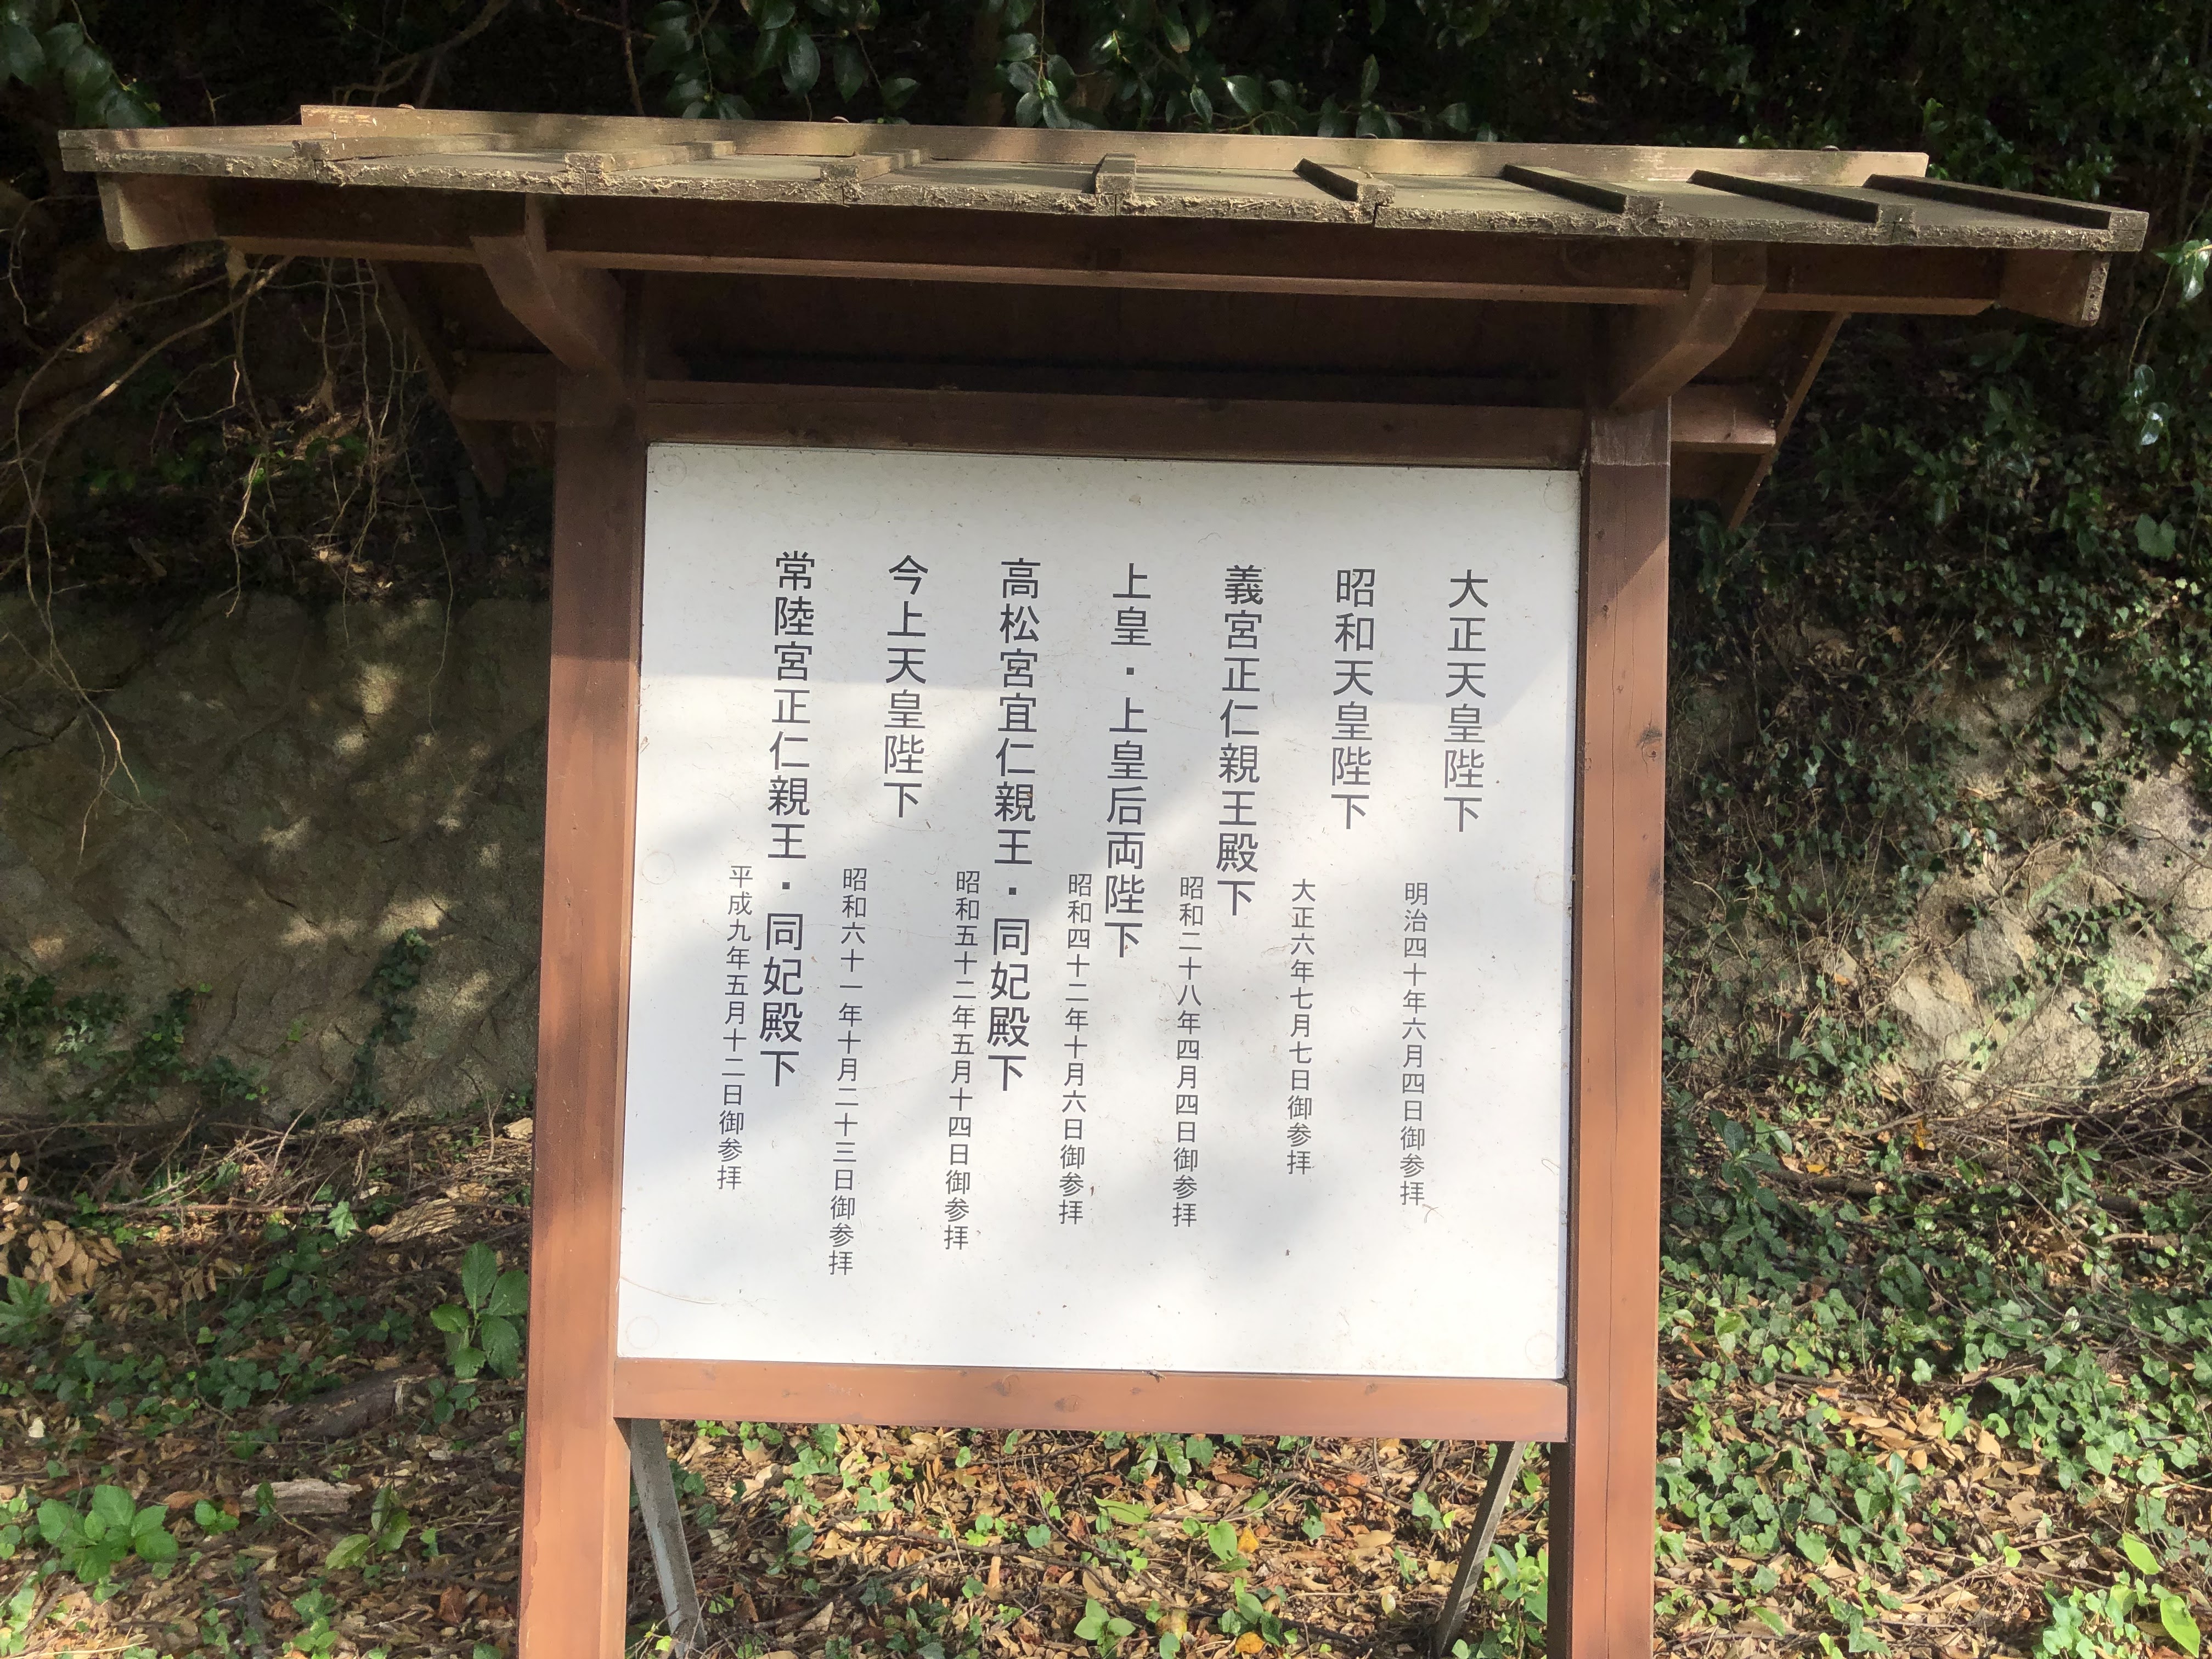 大正天皇陛下
明治四十年六月四日御参拝
昭和天皇陛下
大正六年七月七日御参拝
義宮正仁親王殿下
昭和二十八年四月四日御参拝
上皇・上皇后両陛下
昭和四十二年十月六日御参拝
高松宮宜仁親王・同妃殿下
昭和五十二年五月十四日御参拝
今上天皇陛下
昭和六十一年十月二十三日御参拝
常陸宮正仁親王・同妃殿下
平成九年五月十二日御参拝